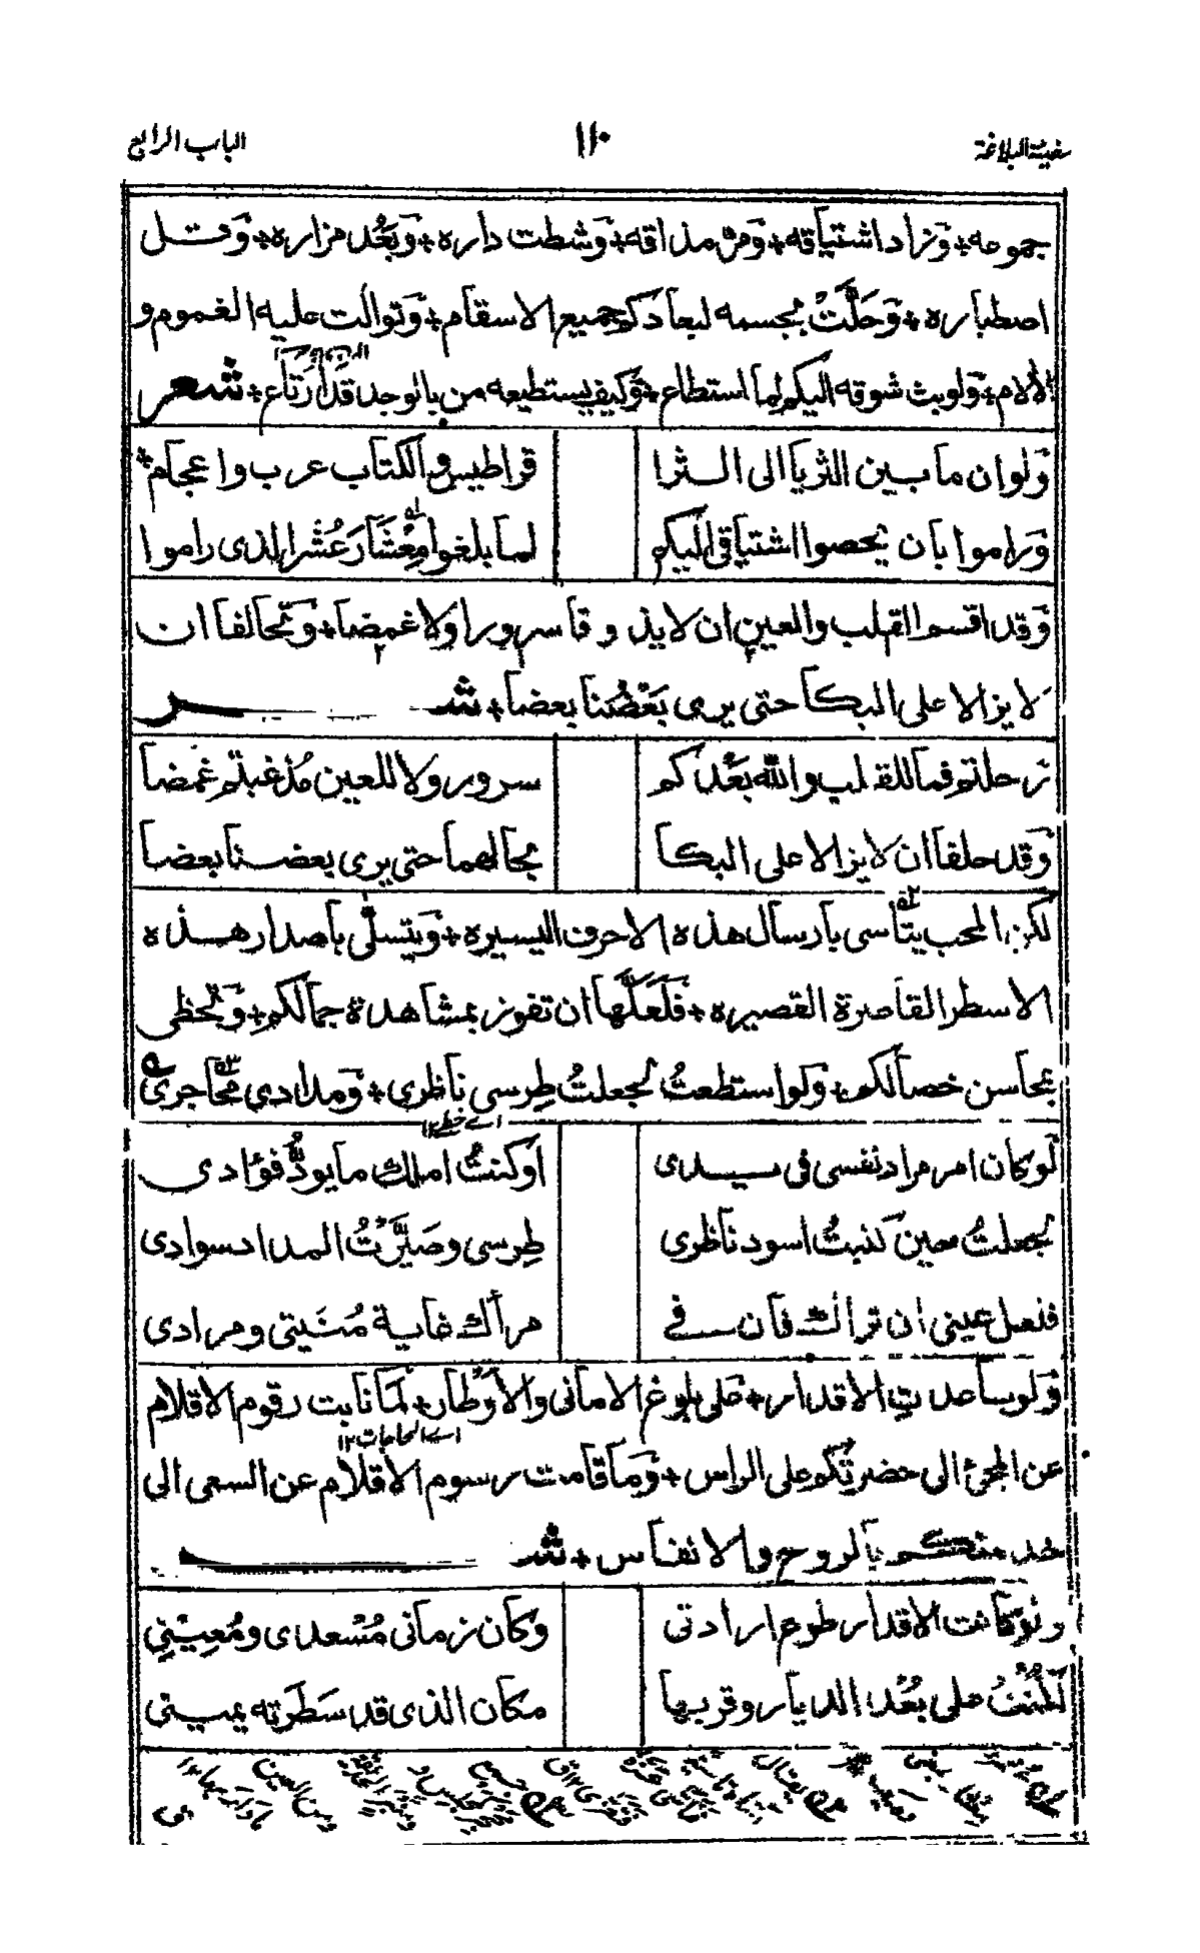 سفينة البلاغة ١١٠ الباب الرابع
جموعه + وَزاد اشتياقه + وَمرّ مذاقه + وَشطت داره + وَبَعُد مزاره + وَقل
اصطباره + وَحَلَّتْ بجسمه لبعادكم جميع الاسقام + وَتوالت عليه الغموم و
الالام + وَلو بث شوقه اليكم لما استطاع + وَكيف يستطيعه من بالوجد قد ارتاع + شعر
وَلو ان ما بين الثريا الى الثرا قراطيس والكتاب عرب واعجام
وَراموا بان يحصوا اشتياقى اليكم لما بلغوا مِعْشَارَ عُشْر الذى راموا
وَقد اقسم القلب والعين ان لا يذوقا سرورا ولا غمضا + وَتحالفا ان
لا يزالا على البكا حتى يرى بَعْضُنا بعضا + شعر
ترحلتم فما للقلب والله بَعْدكم سرور ولا للعين مُذ غبتم غمضا
وَقد حلفا ان لا يزالا على البكا بحالهما حتى يرى بعضنا بعضا
لكن المحب يتأسى بارسال هذه الاحرف اليسيره + وَيتسلّى باصدار هذه
الاسطر القاصرة القصيره + فلَعَلَّها ان تفوز بمشاهدة جمالكم + وَتحظى
بمحاسن خصالكم + وَلو استطعتُ لجعلتُ طِرسى ناظرى + وَمدادى محاجرى
اے خطے ١٢
لو كان امر مراد نفسى فى يدى او كنتُ املك ما يودُّ فؤادى
لجعلتُ حين كتبتُ اسود ناظرى طِرسى وصَيَّرْتُ المداد سوادى
فلعل عينى ان تراك فان فى مرأك غاية مُنيتى ومرادى
وَلو ساعدت الاقدار + على بلوغ الامانى والاَوْطار + لمَا نابت رقوم الاقلام
اے الحاجات ١٢
عن المجئ الى حضرتكم على الراس + وَما قامت رسوم الاقلام عن السعى الى
خدمتكم بالروح والانفاس + شعر
ولو كانت الاقدار طوع ارادتى وكان زمانى مُسْعدى ومُعِيْنِي
لكُنْتُ على بُعْد الديار وقربها مكان الذى قد سَطَرَته يمينى